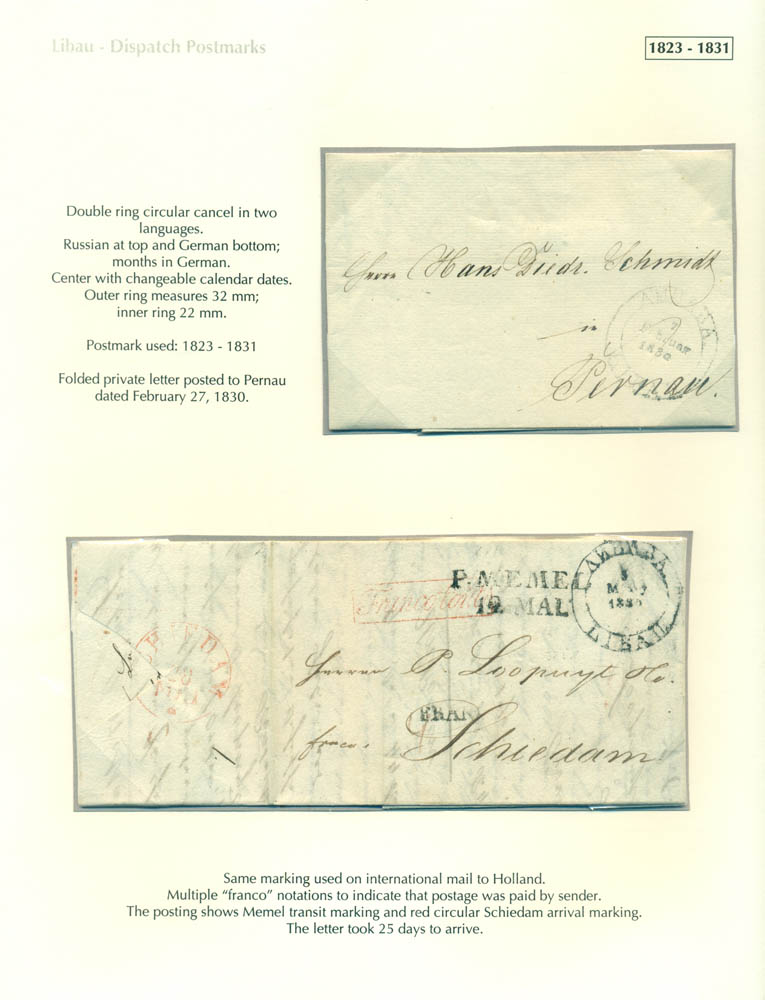 Libau - Dispatch Postmarks
1823 - 1831
Double ring circular cancel in two
languages.
Russian at top and German bottom;
months in German.
Center with changeable calendar dates.
Outer ring measures 32 mm;
inner ring 22 mm.
Postmark used: 1823 - 1831
Folded private letter posted to Pernau
dated February 27, 1830.
Herrn Hans Diedr. Schmidt
in
Pernau.
1830
P. MEMEL
12 MAI
ЛИБАВА
5
LIBAU
Herrn P. Loopuyt
FRAN
franco. Schiedam
Same marking used on international mail to Holland.
Multiple “franco” notations to indicate that postage was paid by sender.
The posting shows Memel transit marking and red circular Schiedam arrival marking.
The letter took 25 days to arrive.